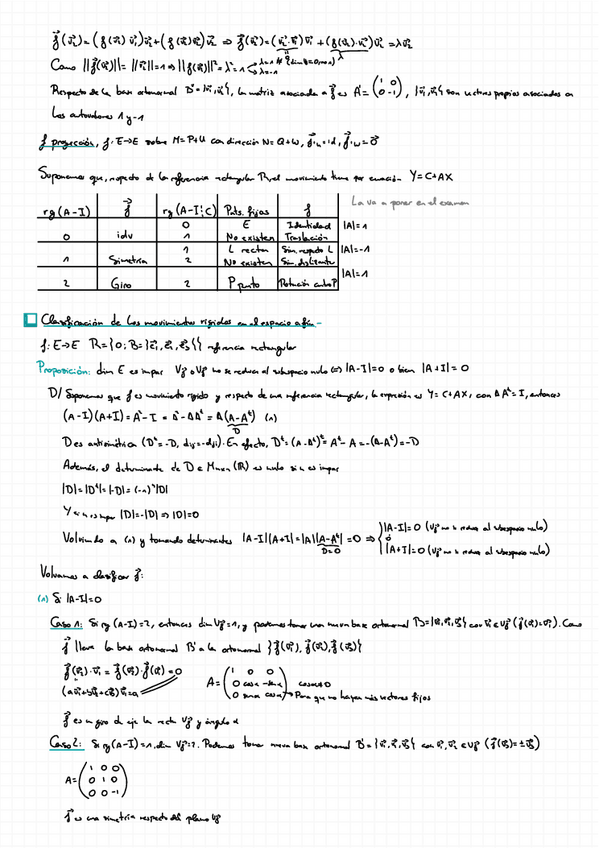 f⃗(v⃗₂) = (f⃗(v⃗₂)·v⃗₁)v⃗₁ + (f⃗(v⃗₂)·v⃗₂)v⃗₂ ⇒ f⃗(v⃗₂) = (v⃗₂·v⃗₁)v⃗₁ + (f⃗(v⃗₂)·v⃗₂)v⃗₂ = λv⃗₂
Como ||f⃗(v⃗₂)|| = ||v⃗₂|| = 1 ⇒ ||f⃗(v⃗₂)||² = λ² = 1 λ=1 λ=-1
Respecto de la base ortonormal B' = {v⃗₁, v⃗₂}, la matriz asociada a f⃗ es A' = (1 0 0 -1), {v⃗₁, v⃗₂} son vectores propios asociados a
los autovalores 1 y -1
f proyección, f: E→E sobre M = P+U con dirección N = Q+W, f⃗|u = id, f⃗|w = 0⃗
Suponemos que, respecto de la referencia rectangular R, el movimiento tiene por ecuación Y = C+AX
La va a poner en el examen
rg(A-I) f⃗ rg(A-I¦C) Pnts. fijos f
0 E Identidad |A|=1
0 idv 1 No existen Traslación
1 L recta Sim. respecto L |A|=-1
1 Simetría 2 No existen Sim. deslizante
2 Giro 2 P punto Rotación centro P |A|=1
Clasificación de los movimientos rígidos en el espacio afín.-
f: E→E R = {O; B = {e⃗₁, e⃗₂, e⃗₃}} referencia rectangular
Proposición: dim E es impar Vf o Vf no se reduce al subespacio nulo ⇔ |A-I| = 0 o bien |A+I| = 0
D/ Suponemos que f es movimiento rígido y respecto de una referencia rectangular, la expresión es Y = C+AX, con AAᵗ = I, entonces
(A-I)(A+I) = A²-I = A²-AAᵗ = A(A-Aᵗ) (1)
D
D es antisimétrica (Dᵗ = -D, dij = -dji). En efecto, Dᵗ = (A-Aᵗ)ᵗ = Aᵗ-A = -(A-Aᵗ) = -D
Además, el determinante de D ∈ Mnxn(ℝ) es nulo si n es impar
|D| = |Dᵗ| = |-D| = (-1)ⁿ|D|
Y si n es impar |D| = -|D| ⇒ |D| = 0
Volviendo a (1) y tomando determinantes |A-I||A+I| = |A||A-Aᵗ| = 0 ⇒ |A-I| = 0 (Vf no se reduce al subespacio nulo)
D=0
ó
|A+I| = 0 (Vf no se reduce al subespacio nulo)
Volvamos a clasificar f⃗:
(1) Si |A-I| = 0
Caso 1: Si rg(A-I) = 2, entonces dim Vf = 1, y podemos tomar una nueva base ortonormal B' = {v⃗₁, v⃗₂, v⃗₃} con v⃗₁ ∈ Vf (f⃗(v⃗₁) = v⃗₁). Como
f⃗ lleva la base ortonormal B' a la ortonormal {f⃗(v⃗₁), f⃗(v⃗₂), f⃗(v⃗₃)}
f⃗(v⃗₂)·v⃗₁ = f⃗(v⃗₂)·f⃗(v⃗₁) = 0
(av⃗₁+bv⃗₂+cv⃗₃)v⃗₁ = a
A = (1 0 0 0 cosα -senα 0 senα cosα) cosα≠1
Para que no hayan más vectores fijos
f⃗ es un giro de eje la recta Vf y ángulo α
Caso 2: Si rg(A-I) = 1, dim Vf = 2. Podemos tomar nueva base ortonormal B' = {v⃗₁, v⃗₂, v⃗₃} con v⃗₁, v⃗₂ ∈ Vf (f⃗(v⃗₃) = ±v⃗₃)
A = (1 0 0 0 1 0 0 0 -1)
f⃗ es una simetría respecto del plano Vf